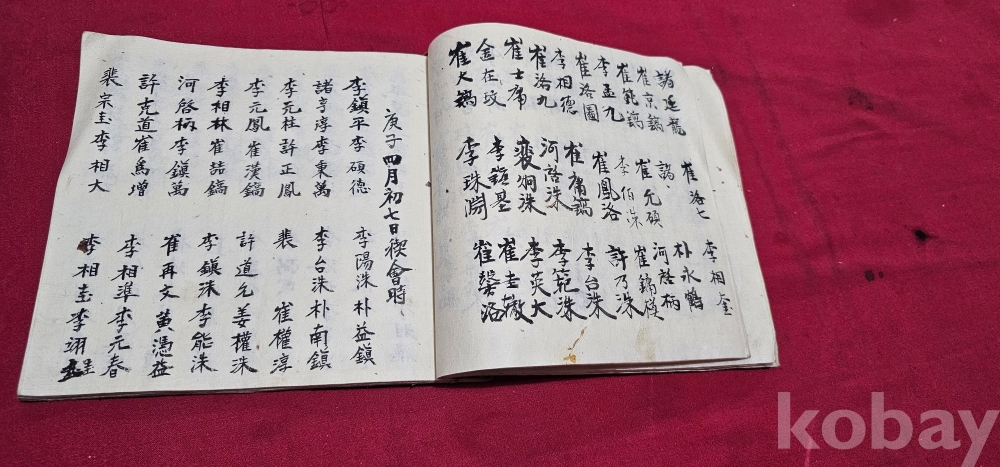 諸運龍
崔京鎬
李孟九
崔洛圖
李相德
崔洛九
崔士
金在玟
崔大鎬
崔洛七
諸
崔允碩
李伯洙
崔鳳洛
崔 鎬
河啓洙
裵炯洙
李鎮基
李珠淵
李相奎
朴永鶴
河啓柄
崔鎬
許乃洙
李台洙
李範洙
李英大
崔圭徹
崔馨洛
庚子四月初七日稧會時
李鎮平 李碩德 李陽洙 朴益鎮
諸亨淳 李東萬 李台洙 朴南鎮
李元柱 許正鳳 裵 崔權淳
李元鳳 崔漢鎬 許道允 姜權洙
李相林 崔喆鎬 李鎮洙 李能洙
河啓柄 李鎮萬 崔再文 黃憑益
許克道 崔爲增 李相準 李元春
裴宗圭 李相大 李相圭 李翊
kobay